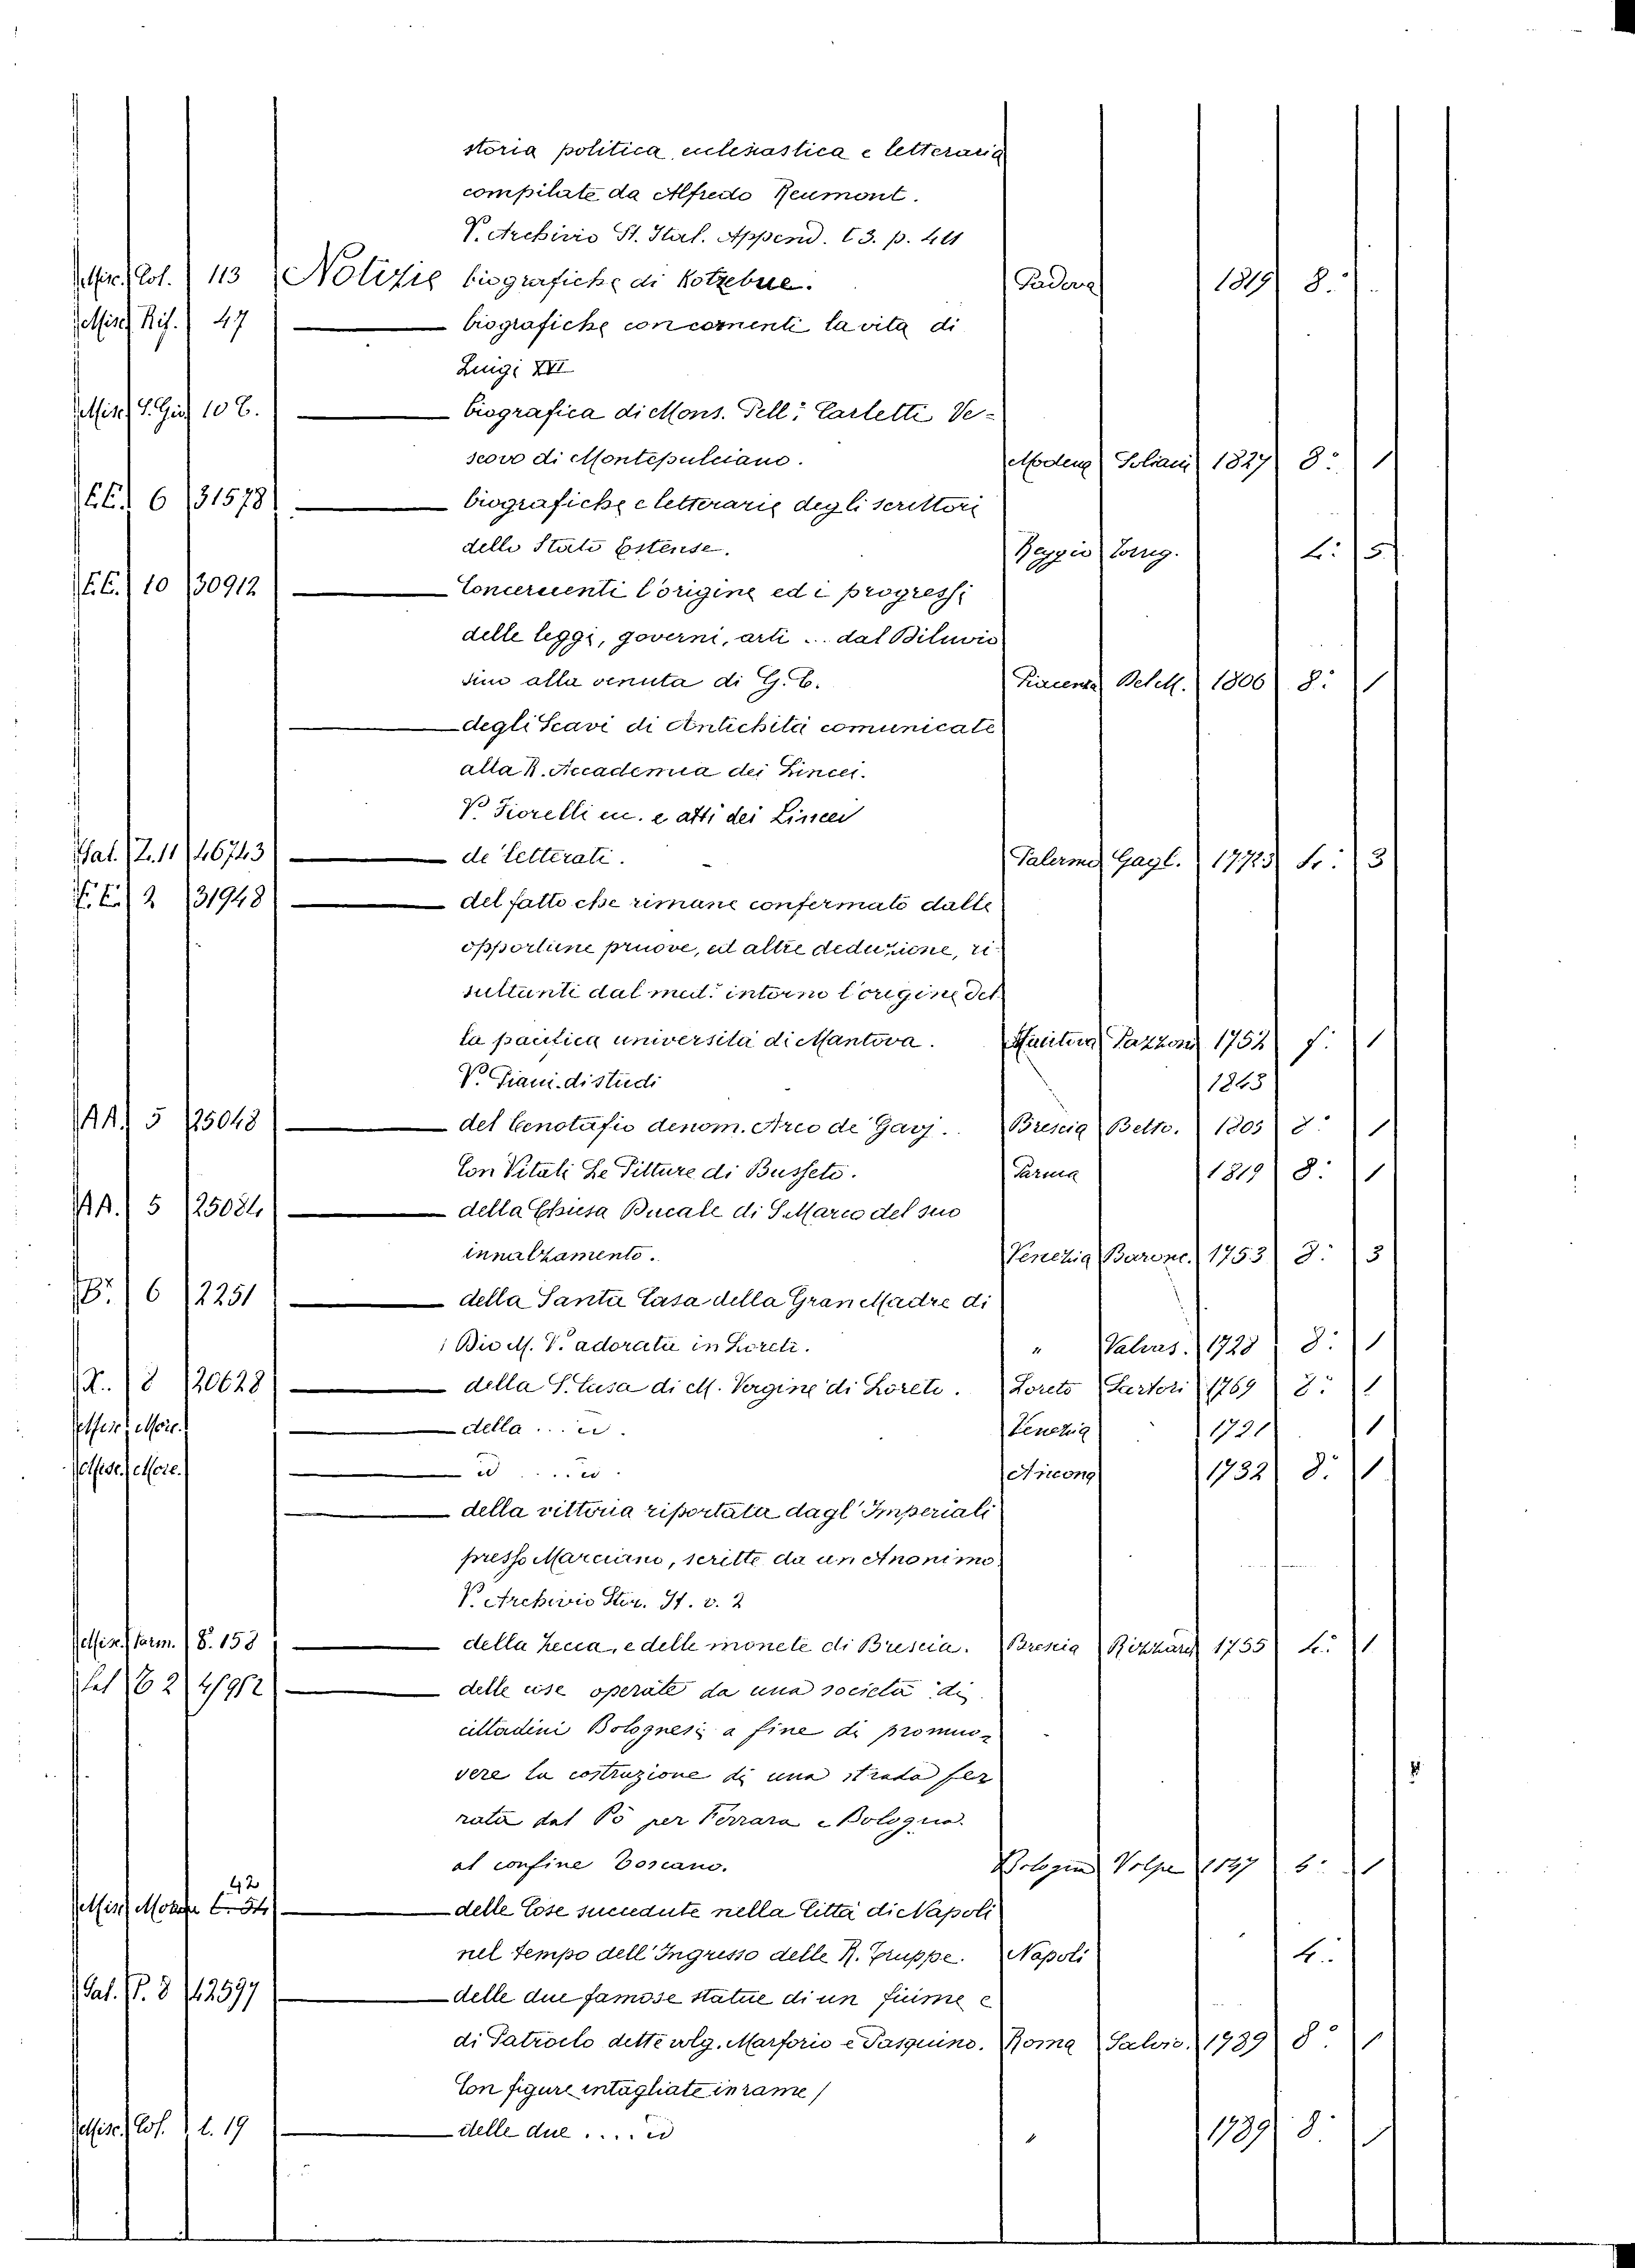 storia politica, eclesiastica e letteraria
compilate da Alfredo Reumont.
V. Archivio St. Ital. Append. t 3. p. 411
Misc. Col. 113 Notizie biografiche di Kotzebue. Padova 1819 8.
Misc. Rif. 47 biografiche concernenti la vita di
Luigi XVI
Misc. 10 biografica di Mons. Pell: Carletti Ve-
scovo di Montepulciano. Modena Soliani 1827 8: 1
6 31578 biografiche e letterarie degli scrittori
dello Stato Estense. Reggio Torreg. 4: 5
10 30912 Concernenti l'origine ed i progressi
delle leggi, governi, arti ... dal Diluvio
sino alla venuta di G. C. Piacenza 1806 8: 1
degli Scavi di Antichità comunicate
alla R. Accademia dei Lincei.
V. Fiorelli e atti dei Lincei
Z. 11 46743 de Letterati. Palermo Gagl. 3
2 31948 del fatto che rimane confermato dalle
opportune pruove, ed altre deduzione, ri
sultanti dal med: intorno l'origine del
la pacifica università di Mantova. Mantova Pazzoni 1752 f: 1
V. Piani di studi 1843
AA. 5 25048 del Cenotafio denom. Arco de Gavj. Brescia Betto. 1805 8: 1
Con Vitali Le Pitture di Busseto. Parma 1819 8: 1
AA. 5 25084 della Chiesa Ducale di S. Marco del suo
innalzamento. Venezia Baronc. 1753 8: 3
6 2251 della Santa Casa della Gran Madre di
Dio M. V. adorata in Loreto. " Valvas. 1728 8: 1
8 20628 della S. Casa di M. Vergine di Loreto. Loreto Sartori 1769 8: 1
Misc. della .... id. Venezia 1721 1
Misc. id ..... id. Ancona 1732 8: 1
della vittoria riportata dagl' Imperiali
presso Marciano, scritte da un Anonimo.
V. Archivio Stor. It. v. 2
Misc. 8. 158 della Zecca, e delle monete di Brescia. Brescia Rizzardi 1755 4: 1
2 delle cose operate da una società di
cittadini Bolognesi a fine di promuo-
vere la costruzione di una strada fer
rata dal Pò per Ferrara e Bologna
al confine Toscano. Bologna Volpe 1
42
Misc. delle Cose succedute nella Città di Napoli
nel tempo dell' Ingresso delle R. Truppe. Napoli 4:
P. 8 42597 delle due famose statue di un fiume e
di Patroclo dette volg. Marforio e Pasquino. Roma Salvio. 1789 8: 1
Con figure intagliate in rame /
Misc. Col. t. 19 delle due .... id " 1789 8: 1